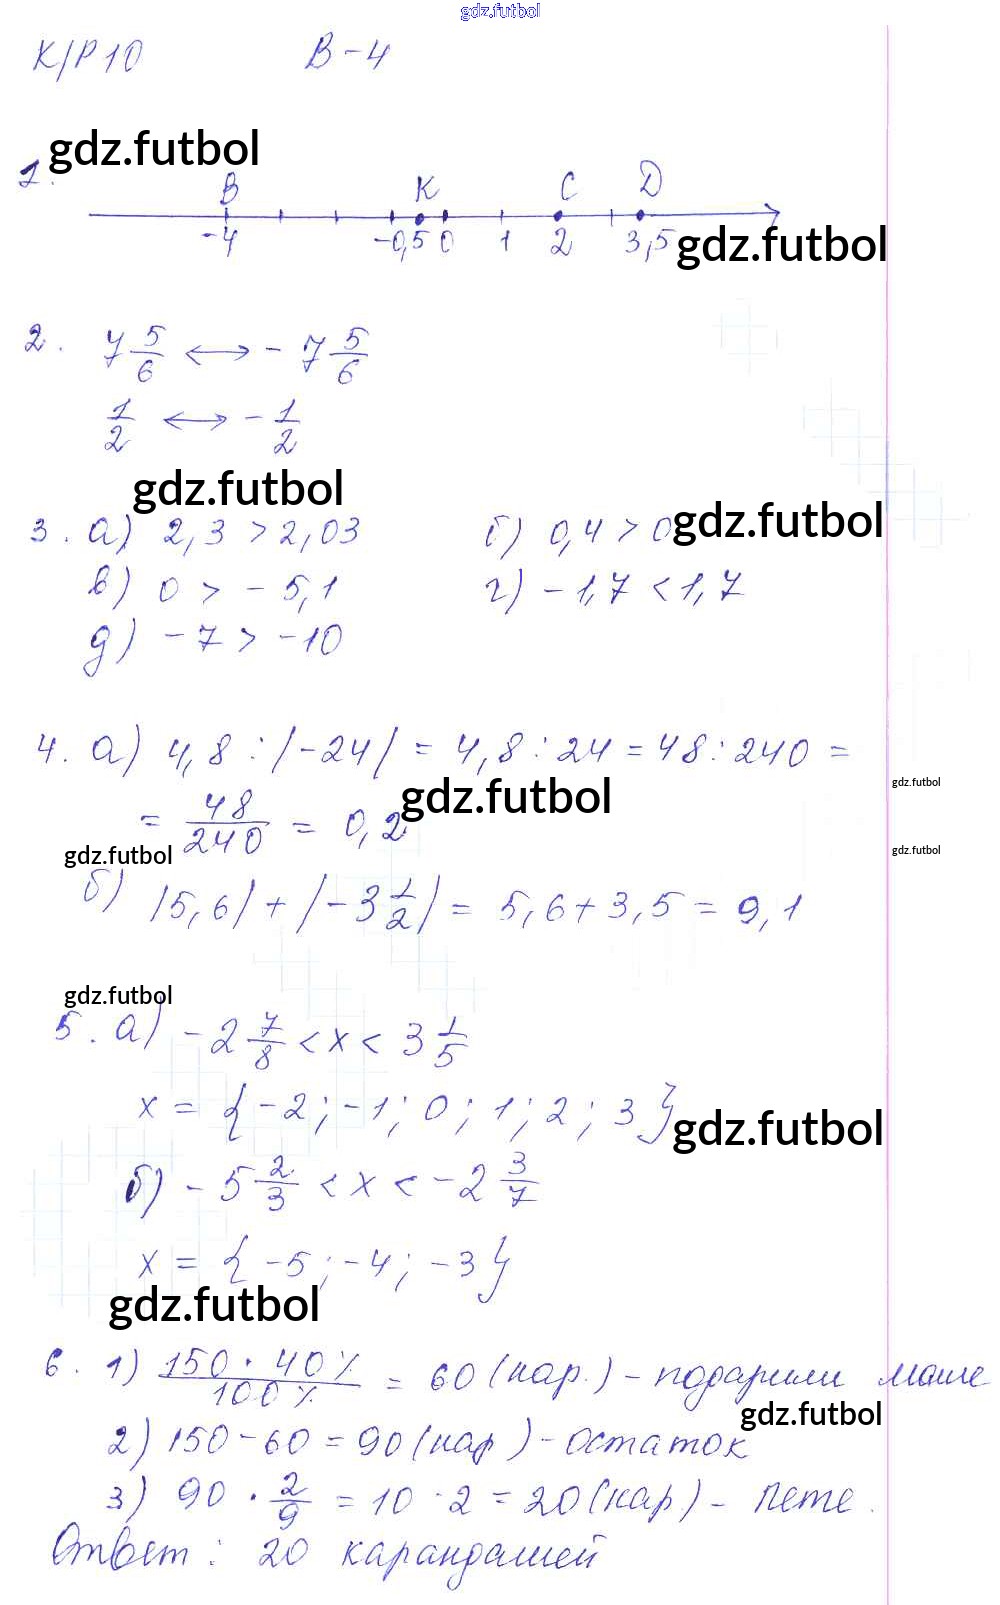 gdz.futbol
К/Р 10 В-4
gdz.futbol
1.
B K C D
-4 -0,5 0 1 2 3,5
gdz.futbol
2. 7 5/6 ↔ - 7 5/6
1/2 ↔ - 1/2
gdz.futbol
3. а) 2,3 > 2,03 б) 0,4 > 0
gdz.futbol
в) 0 > - 5,1 г) - 1,7 < 1,7
д) - 7 > - 10
4. а) 4,8 : |-24| = 4,8 : 24 = 48 : 240 =
gdz.futbol
gdz.futbol
= 48/240 = 0,2
gdz.futbol
gdz.futbol
б) |5,6| + |-3 1/2| = 5,6 + 3,5 = 9,1
gdz.futbol
5. а) - 2 7/8 < x < 3 1/5
x = {-2; -1; 0; 1; 2; 3}
gdz.futbol
б) - 5 2/3 < x < - 2 3/7
x = {-5; -4; -3}
gdz.futbol
6. 1) 150 · 40% / 100% = 60 (кар.) - подарили маше
gdz.futbol
2) 150 - 60 = 90 (кар) - остаток
3) 90 · 2/9 = 10 · 2 = 20 (кар) - Пете.
Ответ: 20 карандашей